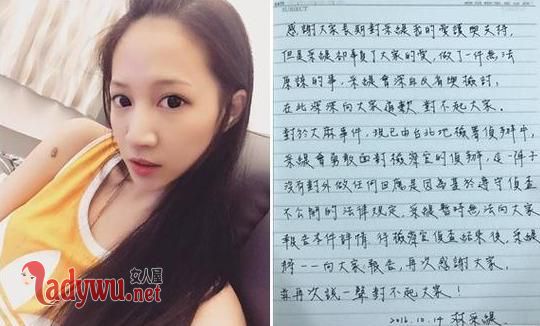 女人屋
ladywu.net
SUBJECT
感謝大家長期對采緹我的愛護與支持,
但是采緹卻辜負了大家的愛,做了一件無法
原諒的事,采緹會深自反省與檢討,
在此深深向大家道歉 對不起大家.
對於大麻事件,現已由台北地檢署偵辦中,
采緹會勇敢面對檢察官的偵辦,這一陣子
沒有對外做任何回應是因為基於遵守偵查
不公開的法律規定,采緹暫時無法向大家
報告本件詳情,待檢察官偵查結束後,采緹
將一一向大家報告,再次感謝大家,
並再次說一聲對不起大家!
2016.10.14 林采緹